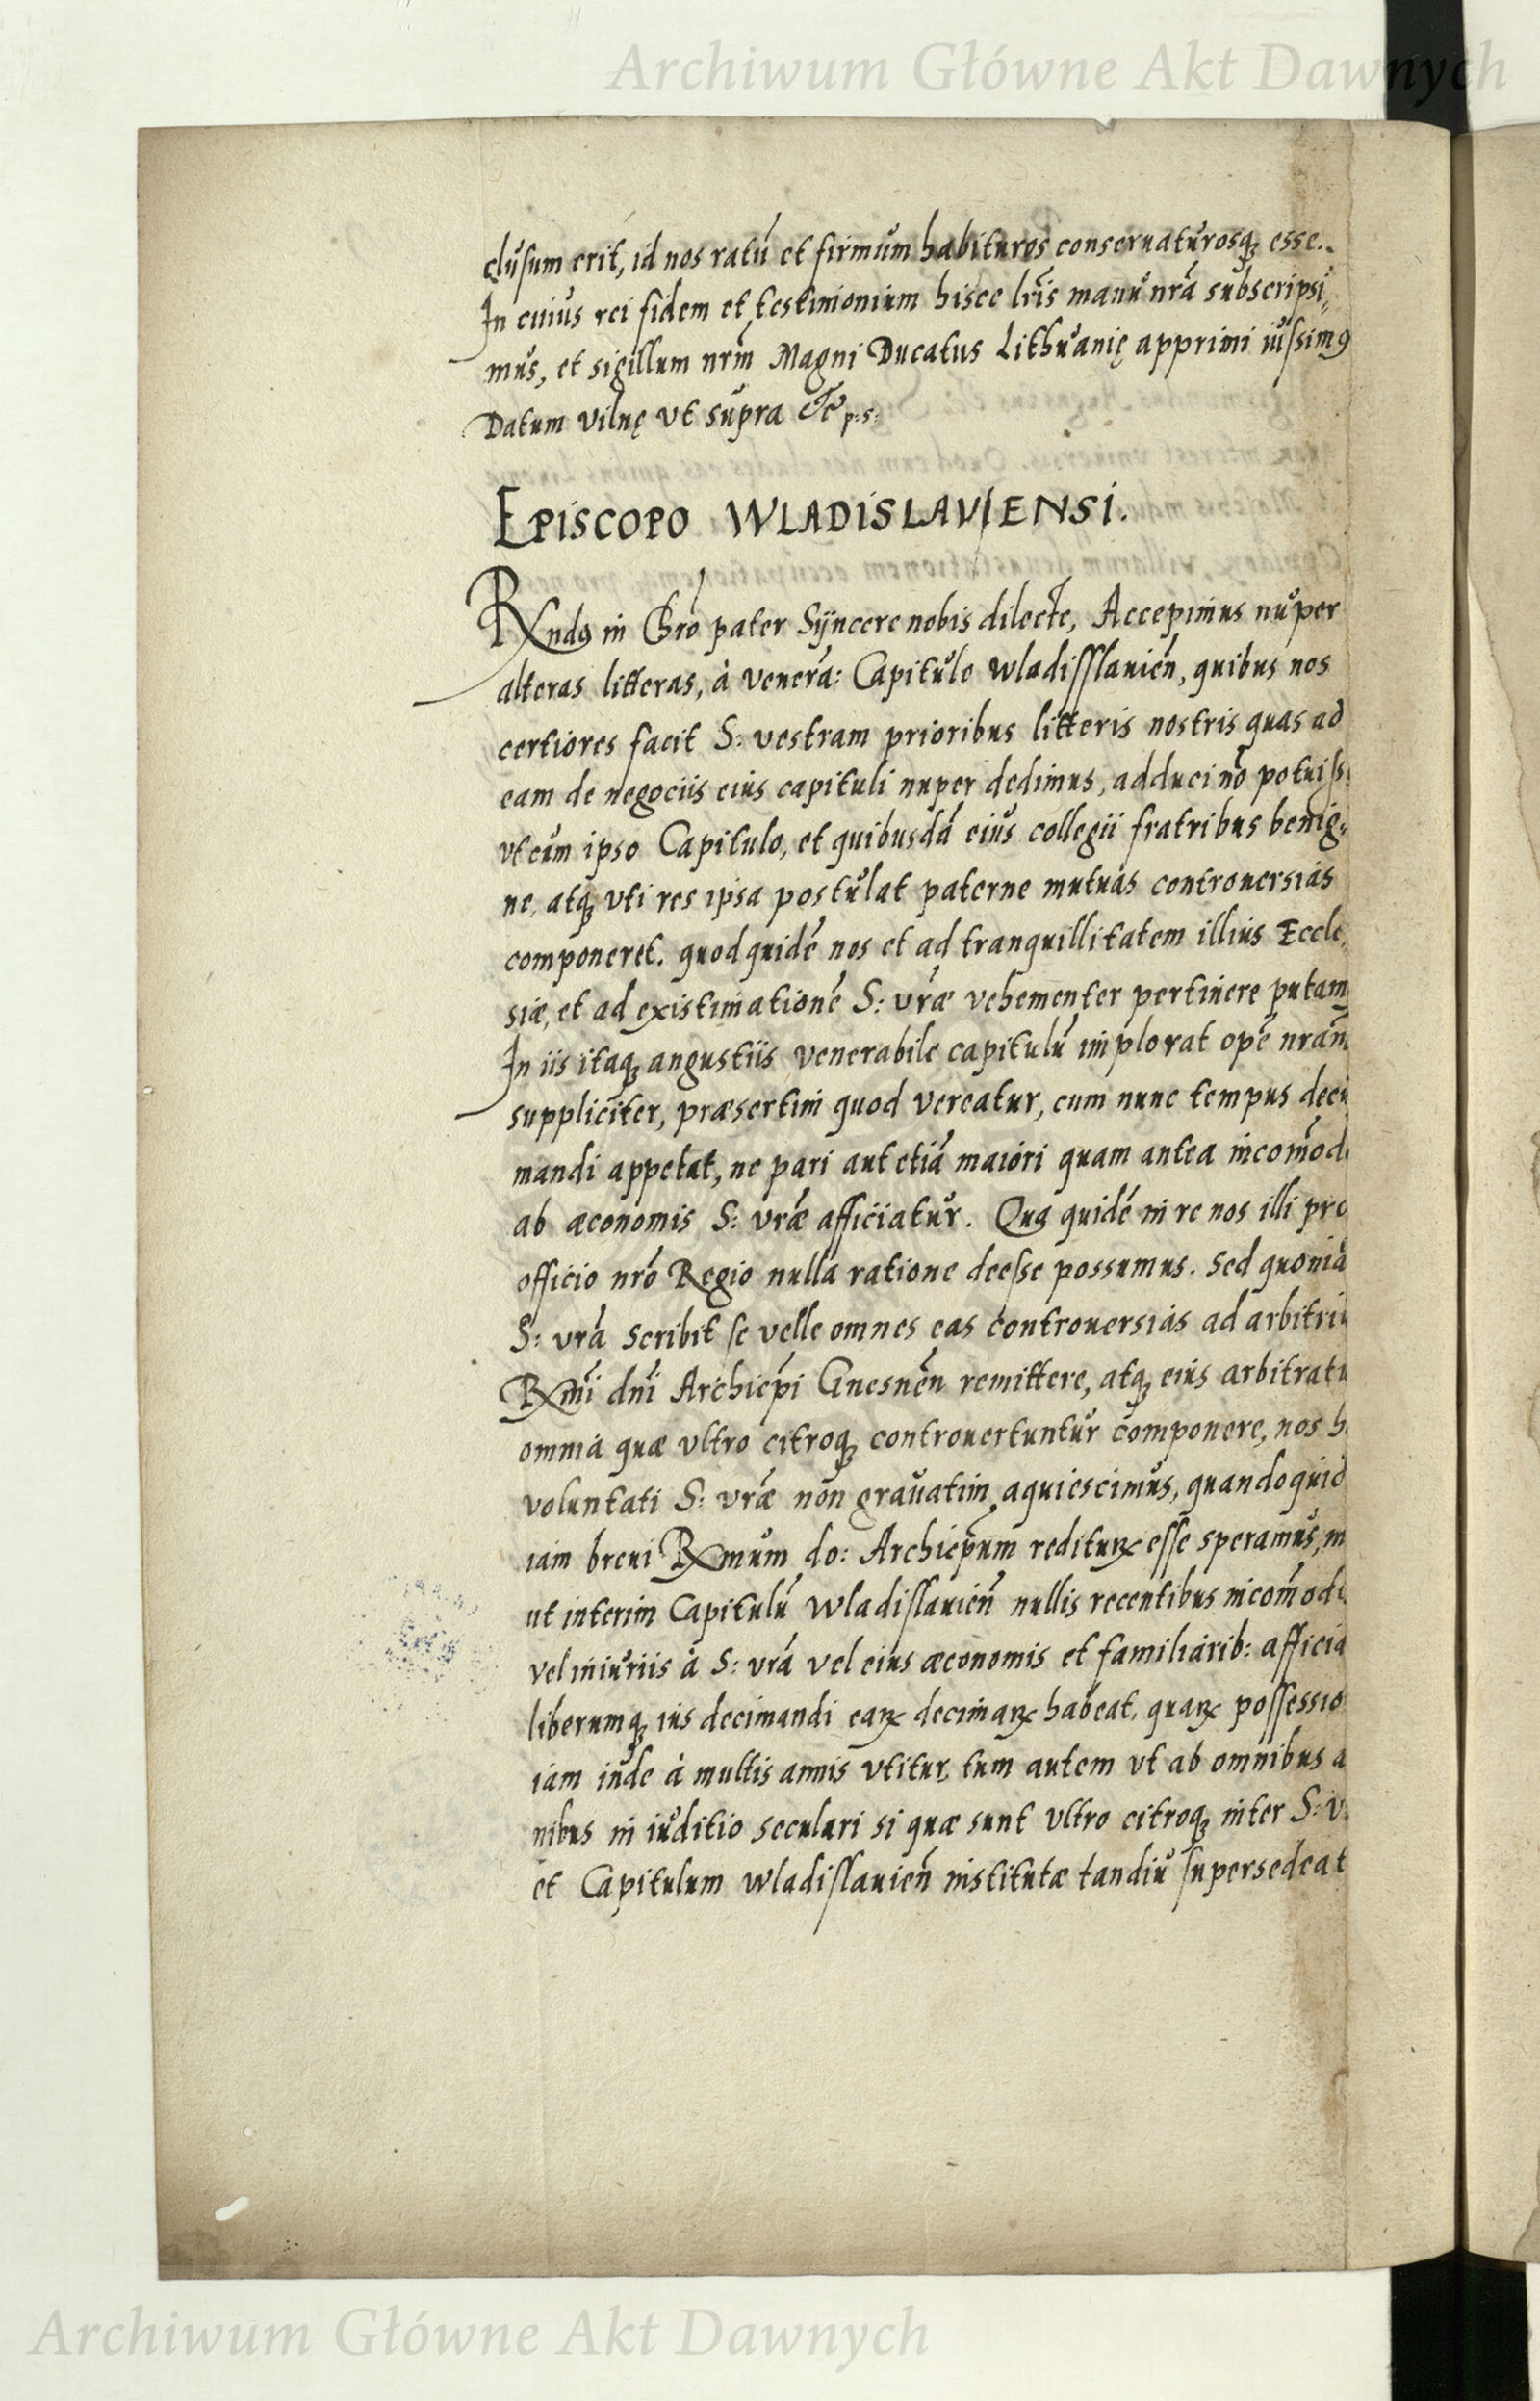 Archiwum Główne Akt Dawnych
clusum erit, id nos ratū et firmum habituros conseruaturosq; esse.
In cuius rei fidem et testimonium hisce lr̄is manu nr̄a subscripsi,,
mus, et sigillum nr̄m Magni Ducatus Lithuanię apprimi iussim9
Datum Vilnę vt supra &c p:s:
EPISCOPO WLADISLAVIENSI.
Rnd9 in Chr̄o pater Syncere nobis dilecte, Accepimus nuper
alteras litteras, à venerā: Capitulo Wladisslauień, quibus nos
certiores facit S: vestram prioribus litteris nostris quas ad
eam de negociis eius capituli nuper dedimus, adduci nō potuiss
vt cum ipso Capitulo, et quibusdā eius collegii fratribus benig,,
ne, atq; vti res ipsa postulat paterne mutuas controuersias
componeret. quod quidē nos et ad tranquillitatem illius Eccle,
siæ, et ad existimationē S: vr̄æ vehementer pertinere putam
In iis itaq; angustiis venerabile capitulū implorat opē nrām
suppliciter, præsertim quod vereatur, cum nunc tempus deci
mandi appetat, ne pari aut etiā maiori quam antea incōmod
ab æconomis S: vr̄æ afficiatur. Qua quidē in re nos illi pro
officio nr̄o Regio nulla ratione deesse possumus. Sed quoniā
S: vr̄a scribit se velle omnes eas controuersias ad arbitriu
Rmi dn̄i Archiep̄i Gnesnēn remittere, atq; eius arbitratu
omnia quæ vltro citroq; controuertuntur componere, nos h
voluntati S: vr̄æ non grauatim aquiescimus, quandoquid
iam breui Rmum do: Archiep̄um rediturꝝ esse speramus, m
ut interim Capitulū Wladislauień nullis recentibus incōmodi
vel iniuriis à S: vr̄a vel eius æconomis et familiarib: afficia
liberumq; ius decimandi earꝝ decimarꝝ habeat, quarꝝ possessio
iam inde à multis annis vtitur, tum autem vt ab omnibus a
nibus in iuditio seculari si quæ sunt vltro citroq; inter S: v.
et Capitulum Wladislauień institutæ tandiu supersedeat
Archiwum Główne Akt Dawnych